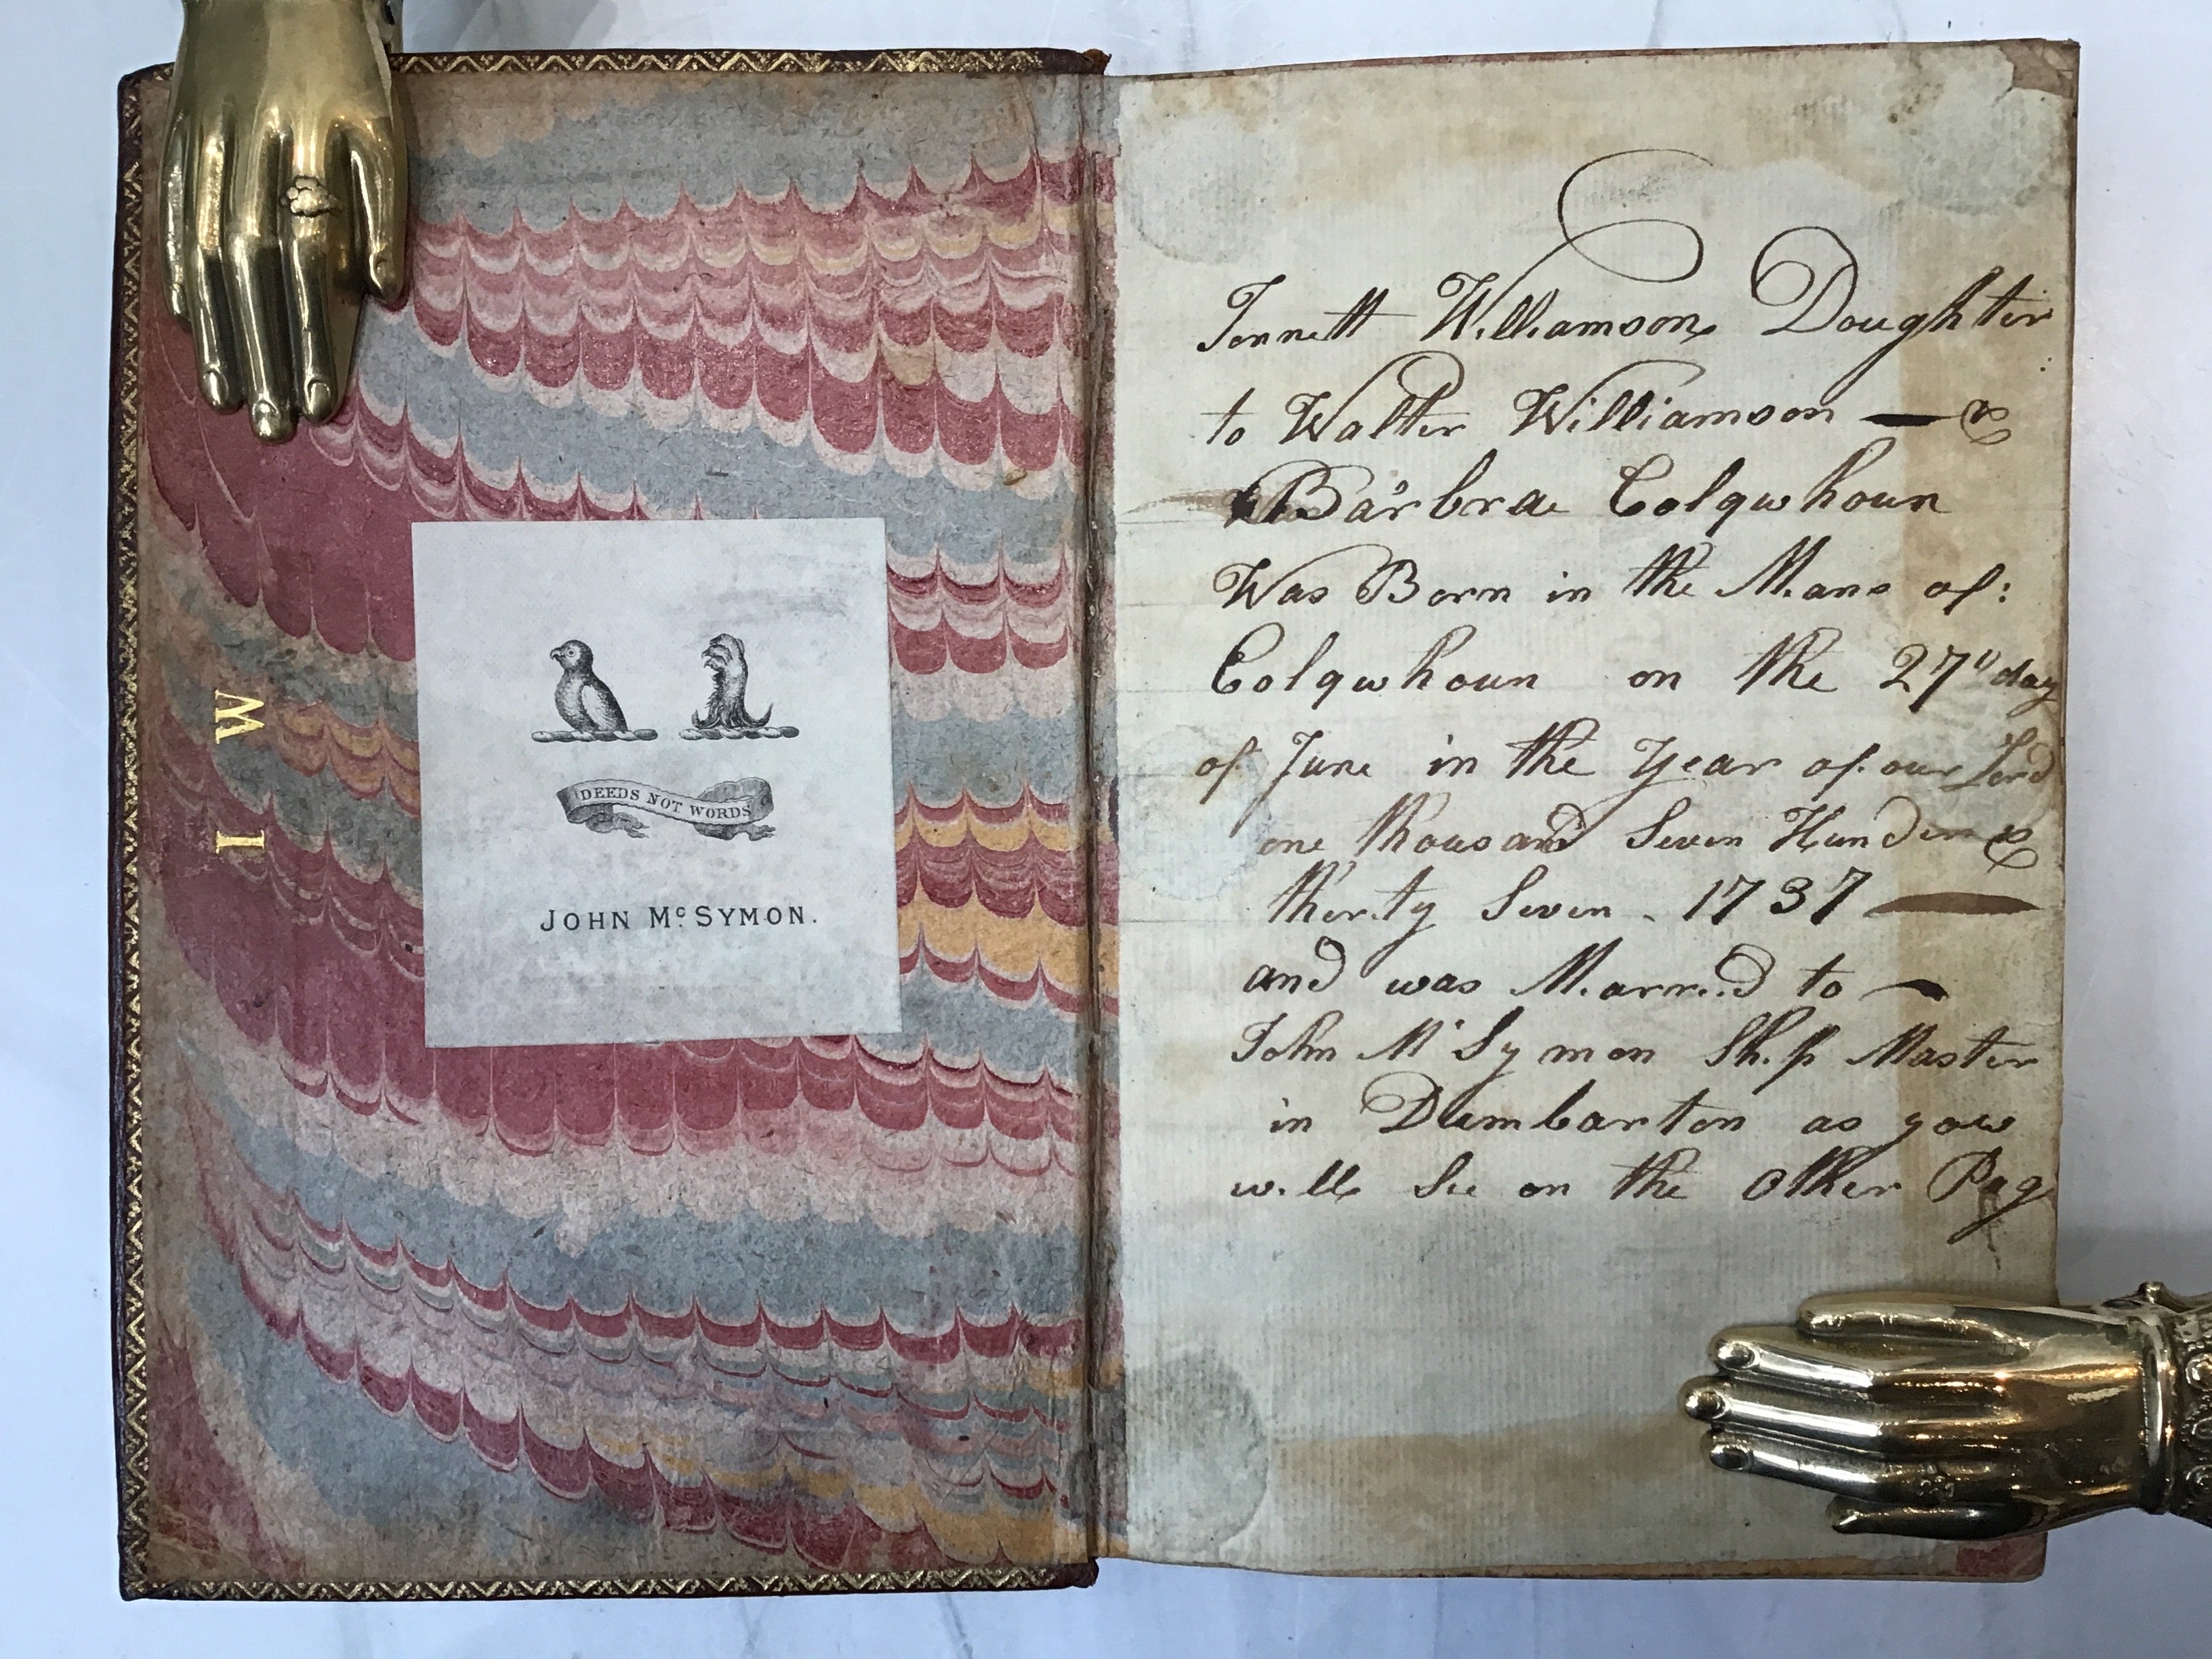 I W
DEEDS NOT WORDS
JOHN Mc. SYMON.
Jennett Williamson Doughter
to Walter Williamson — &
Barbra Colqwhoun
Was Born in the Mans of:
Colqwhoun on the 27th day
of June in the Year of our Lord
one thousand Seven Hunder &
therty Seven - 1737 —
and was Marri.d to —
John Mc Symon Ship Master
in Dumbarton as yow
will See on the Other Pag